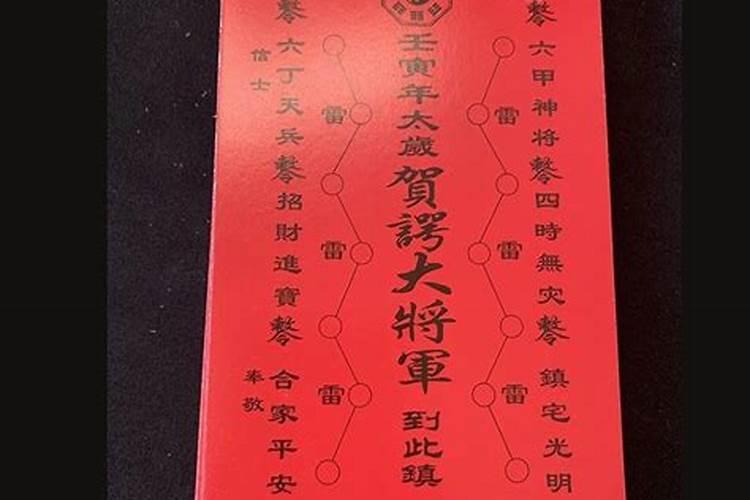 六甲神將 四時無災 鎮宅光明
雷 雷 雷
壬寅年太歲賀諤大將軍到此鎮
雷 雷 雷
六丁天兵 招財進寶 合家平安
信士 奉敬